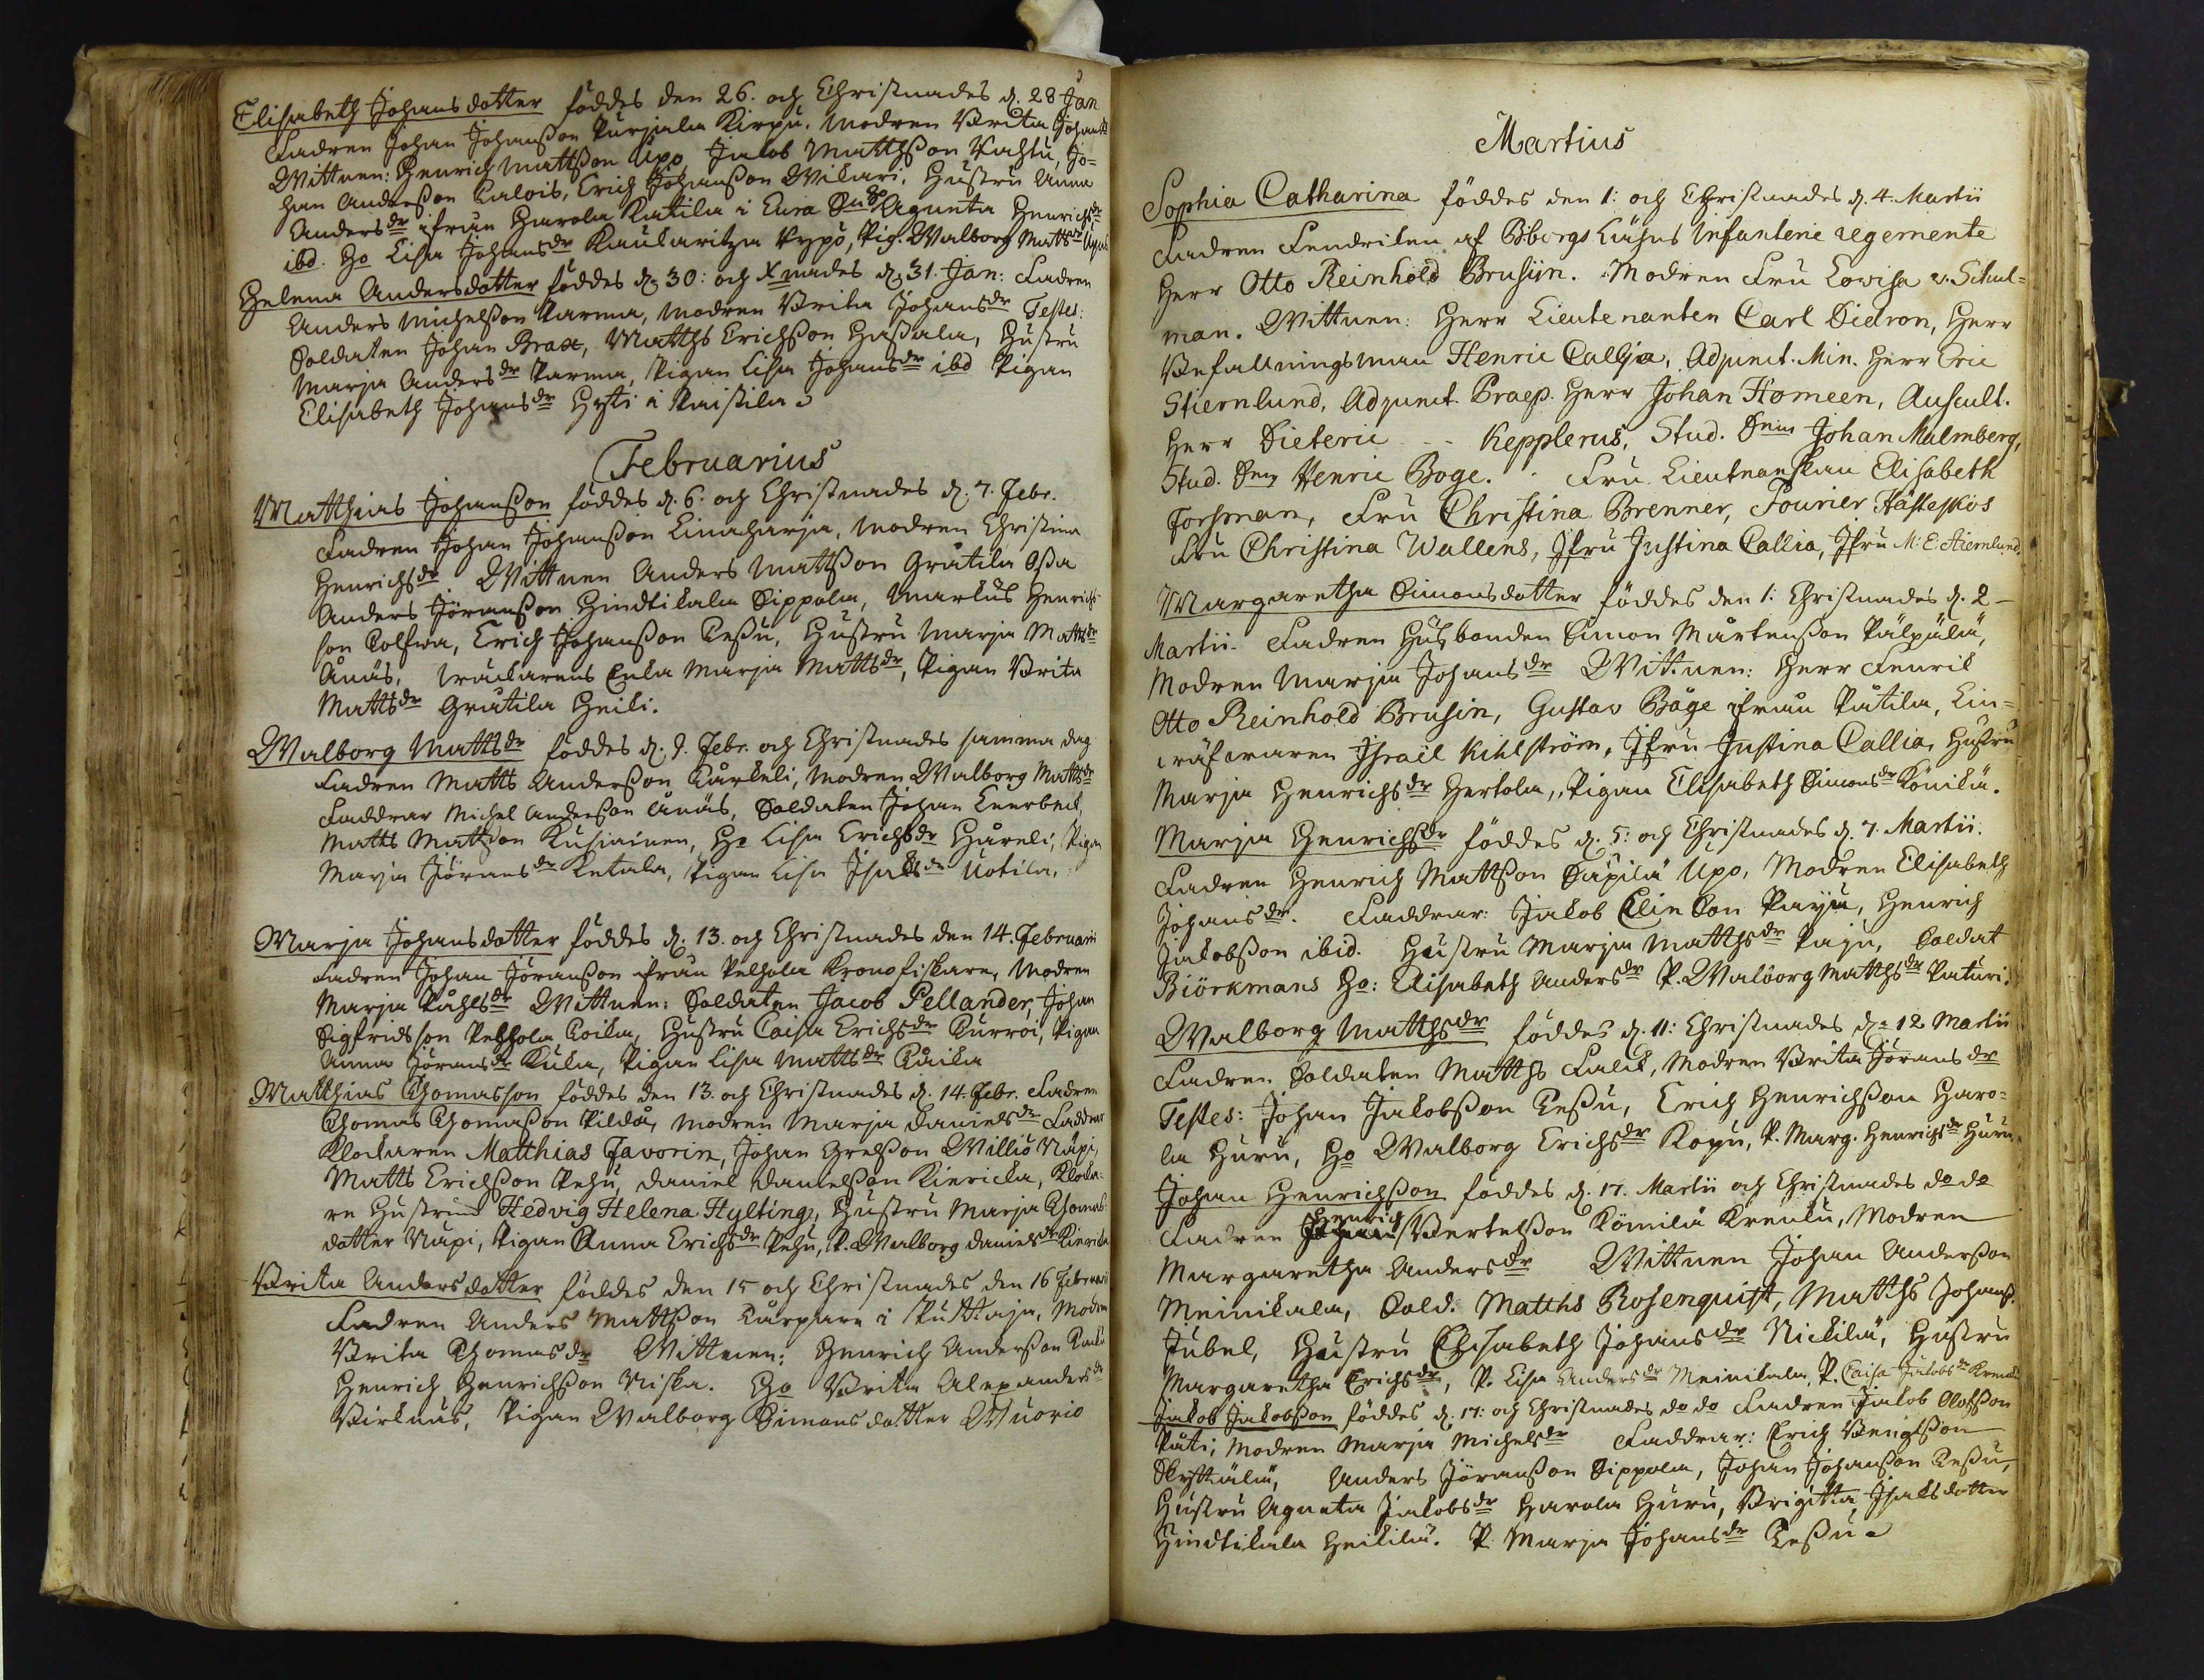 Elisabeth Johansdotter föddes den 26. och Christnades d. 28 Jan.
Fadren Johan Johansson Purjala Kirpu. Modren Brita Johansdr
Wittnen: Henrich Mattsson Upo, Jakob Matthsson Vahtu, Jo=
han Andersson Talois, Erich Johansson Wikari. Hustru Anna
Andersdr ifrån Harola Katila i Eura Agneta Henrichsdr
ibd. Ho Lisa Johansdr Kaukaritza Pypö, Pig. Walborg Mattsdr
Helena Andersdotter föddes d. 30: och Xnades d. 31. Jan: Fadren
Anders Michelsson Parma, Modren Brita Johansdr Testes:
Soldaten Johan Brax, Matths Erichsson Hassala, Hustru
Marja Andersdr Parma, Pigan Lisa Johansdr ibd Pigan
Elisabeth Johansdr Hysti i Paistila
Februarius
Matthias Johansson föddes d. 6. och Christnades d. 7. Febr.
Fadren Johan Johansson Linaharja, Modren Christina
Henrichsdr Wittnen Anders Mattsson Gråtila Ossa
Anders Jöransson Hindtikala Sippola, Markus Henrichs-
son Tolfwa, Erich Johansson Tessu, Hustru Marja Mattsdr
Ånäs, Enka Marja Mattsdr, Pigan Brita
Mattsdr Gråtila Heiki.
Walborg Mattsdr föddes d. 9. Febr. och Christnades samma dag
Fadren Matts Andersson Kårkeli, Modren Walborg Mattsdr
Faddrar Michel Andersson Ånäs, Soldaten Johan Leerbeck,
Matts Mattsson Kusiainen, Ho Lisa Erichsdr Håreli, Pigan
Marja Jöransdr Ketala, Pigan Lisa Isaksdr Uotila.
Marja Johansdotter föddes d. 13. och Christnades den 14. Februarii
Fadren Johan Jöransson ifrån Pelhola Kronofiskare, Modren
Marja Påhlsdr Wittnen: Soldaten Jacob Pellander, Johan
Sigfridsson Pelhola Koika, Hustru Caisa Erichsdr Kurroi, Pigan
Anna Jöransdr Kula, Pigan Lisa Mattsdr Kaika
Matthias Thomasson föddes den 13. och Christnades d. 14. Febr. Fadren
Thomas Thomasson Pildå, Modren Marja Danielsdr Faddrar
Klockaren Matthias Favorin, Johan Grelsson Williö Näpi,
Matts Erichsson Pehu, Daniel Danielsson Kiericka, Klocka-
re Hustrun Hedvig Helena Hylting, Hustru Marja Thomas-
dotter Näpi, Pigan Anna Erichsdr Pehu, P. Walborg Danielsdr Kiericka
Brita Andersdotter föddes den 15 och Christnades den 16 Februarii
Fadren Anders Mattsson Tårpare i Puttaja, Modren
Brita Thomasdr Wittnen: Henrich Andersson
Henrich Henrichsson Niska. Ho Brita Alexandersdr
Birknäs, Pigan Walborg Simonsdotter Wuorio
Martius
Sophia Catharina föddes den 1: och Christnades d. 4. Martii
Fadren Fendriken af Biörborgs Läns Infanterie regemente
Herr Otto Reinhold Brusiin. Modren Fru Lovisa v. Schul=
man. Wittnen: Herr Lieutenanten Carl Didron, Herr
Befallningsman Henric Callja, Adjunct. Min. Herr Eric
Stiernlund, Adjunct. Praep. Herr Johan Homeen, Auscult.
Herr Dieteric - - Kepplerus, Stud. Dnus Johan Malmberg,
Stud. Dns Henric Boge. Fru Lieutnanskan Elisabeth
Forsman, Fru Christina Brenner, Fourier Hästeskos
Fru Christina Wallens, Jfru Justina Callia, Jfru M: E: Stiernlund.
Margaretha Simonsdotter föddes den 1: Christnades d. 2 -
Martii. Fadren Husbonden Simon Mårtensson Pälpälä,
Modren Marja Johansdr Wittnen: Herr Fenrik
Otto Reinhold Brusin, Gustav Båge ifrån Påtila, Lin=
wäfwaren Israël Kihlström, Jfru Justina Callia, Hustru
Marja Henrichsdr Hertola, Pigan Elisabeth Simonsdr Könikä.
Marja Henrichsdr föddes d. 5: och Christnades d. 7. Martii.
Fadren Henrich Mattsson Säpilä Upo, Modren Elisabeth
Johansdr. Faddrar: Jakob Clin Son Paju, Henrich
Jakobsson ibid. Hustru Marja Matthsdr Paju, Soldat
Biörkmans Ho: Elisabeth Andersdr P. Walborg Matthsdr Paturi.
Walborg Matthsdr föddes d. 11: Christnades d. 12 Martii
Fadren Soldaten Matths Falck, Modren Brita Jöransdr
Testes: Johan Jakobsson Tessu, Erich Henrichsson Haro=
la Huru, Ho Walborg Erichsdr Kopu, P. Marg. Henrichsdr Huru.
Johan Henrichsson föddes d. 17. Martii och Christnades do do
Fadren Henrich Bertelsson Kömilä Krenku, Modren
Margaretha Andersdr Wittnen Johan Andersson
Meinikala, Sold. Matths Rosenquist, Matths Johanss.
Jubel, Hustru Elisabeth Johansdr Nickilä, Hustru
Margaretha Erichsdr, P. Lisa Andersdr Meinikala, P. Caisa Jakobsdr Krenku
Jakob Jakobsson föddes d. 17: och Christnades do do Fadren Jakob Olofsson
Påti, Modren Marja Michelsdr Faddrar: Erich Bengtsson
Skyttälä, Anders Jöransson Sippola, Johan Johansson Tessu,
Hustru Agneta Jakobsdr Harola Huru, Brigitta Isaksdotter
Hindtikala Heikilä. P. Marja Johansdr Tessu